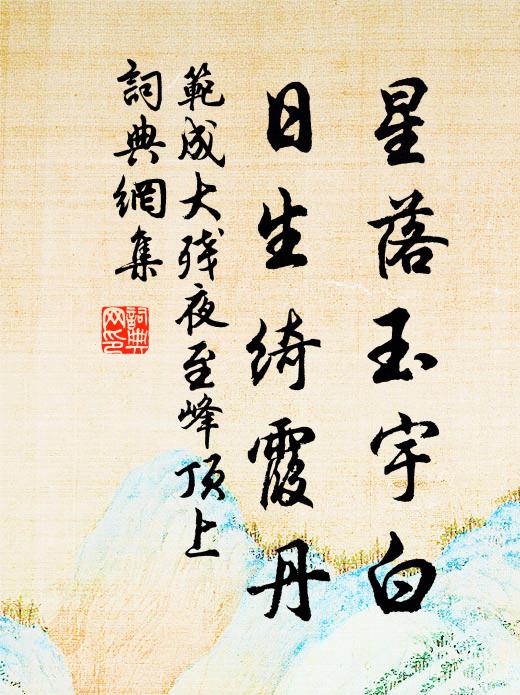 星落玉宇白
日生绮霞丹
範成大残夜至峰顶上
詞典網集
詞典网印